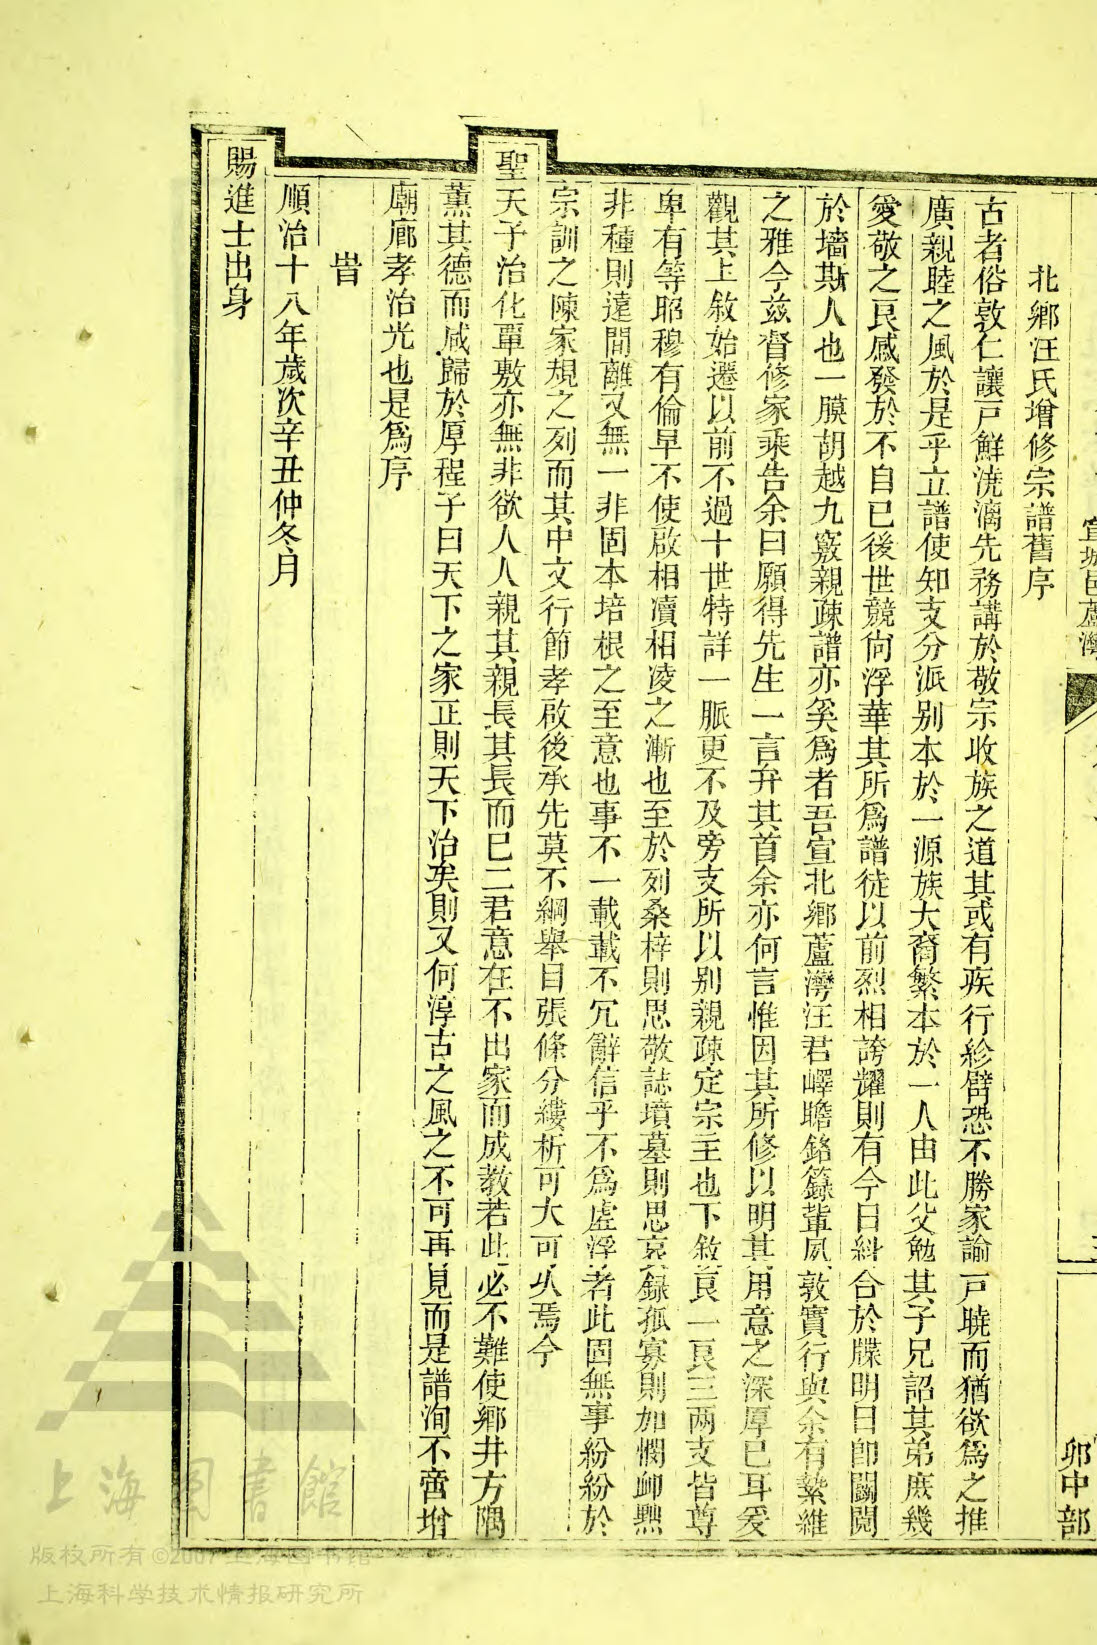 宣城邑蘆灣
卯中部
北鄉汪氏增修宗譜舊序
古者俗敦仁讓戸鮮澆漓先務講於敬宗收族之道其或有疾行紾臂恐不勝家諭戸曉而猶欲爲之推
廣親睦之風於是乎立譜使知支分派别本於一源族大裔繁本於一人由此父勉其子兄詔其弟庶幾
愛敬之良感發於不自已後世競尙浮華其所爲譜徒以前烈相誇耀則有今日糾合於牒明日卽鬩
於墻斯人也一膜胡越九竅親疎譜亦奚爲者吾宣北鄉蘆灣汪君嶧瞻銘籙輩夙敦實行與余有縶維
之雅今兹督修家乘告余曰願得先生一言弁其首余亦何言惟因其所修以明其用意之深厚已耳爰
觀其上敘始遷以前不過十世特詳一脈更不及旁支所以别親疎定宗主也下敘良一良三兩支皆尊
卑有等昭穆有倫早不使啟相瀆相凌之漸也至於列桑梓則思敬誌墳墓則思哀錄孤寡則加憫卹黑
非種則遠間離又無一非固本培根之至意也事不一載載不冗辭信乎不爲虛浮者此固無事紛紛於
宗訓之陳家規之列而其中文行節孝啟後承先莫不綱舉目張條分縷析可大可久焉今
聖天子治化覃敷亦無非欲人人親其親長其長而已二君意在不出家而成教若此必不難使鄉井方隅
薰其德而咸歸於厚程子曰天下之家正則天下治矣則又何淳古之風之不可再見而是譜洵不啻增
廟廊孝治光也是爲序
旹
順治十八年歲次辛丑仲冬月
賜進士出身
上海圖書館
版权所有©2007上海图书馆
上海科学技术情报研究所